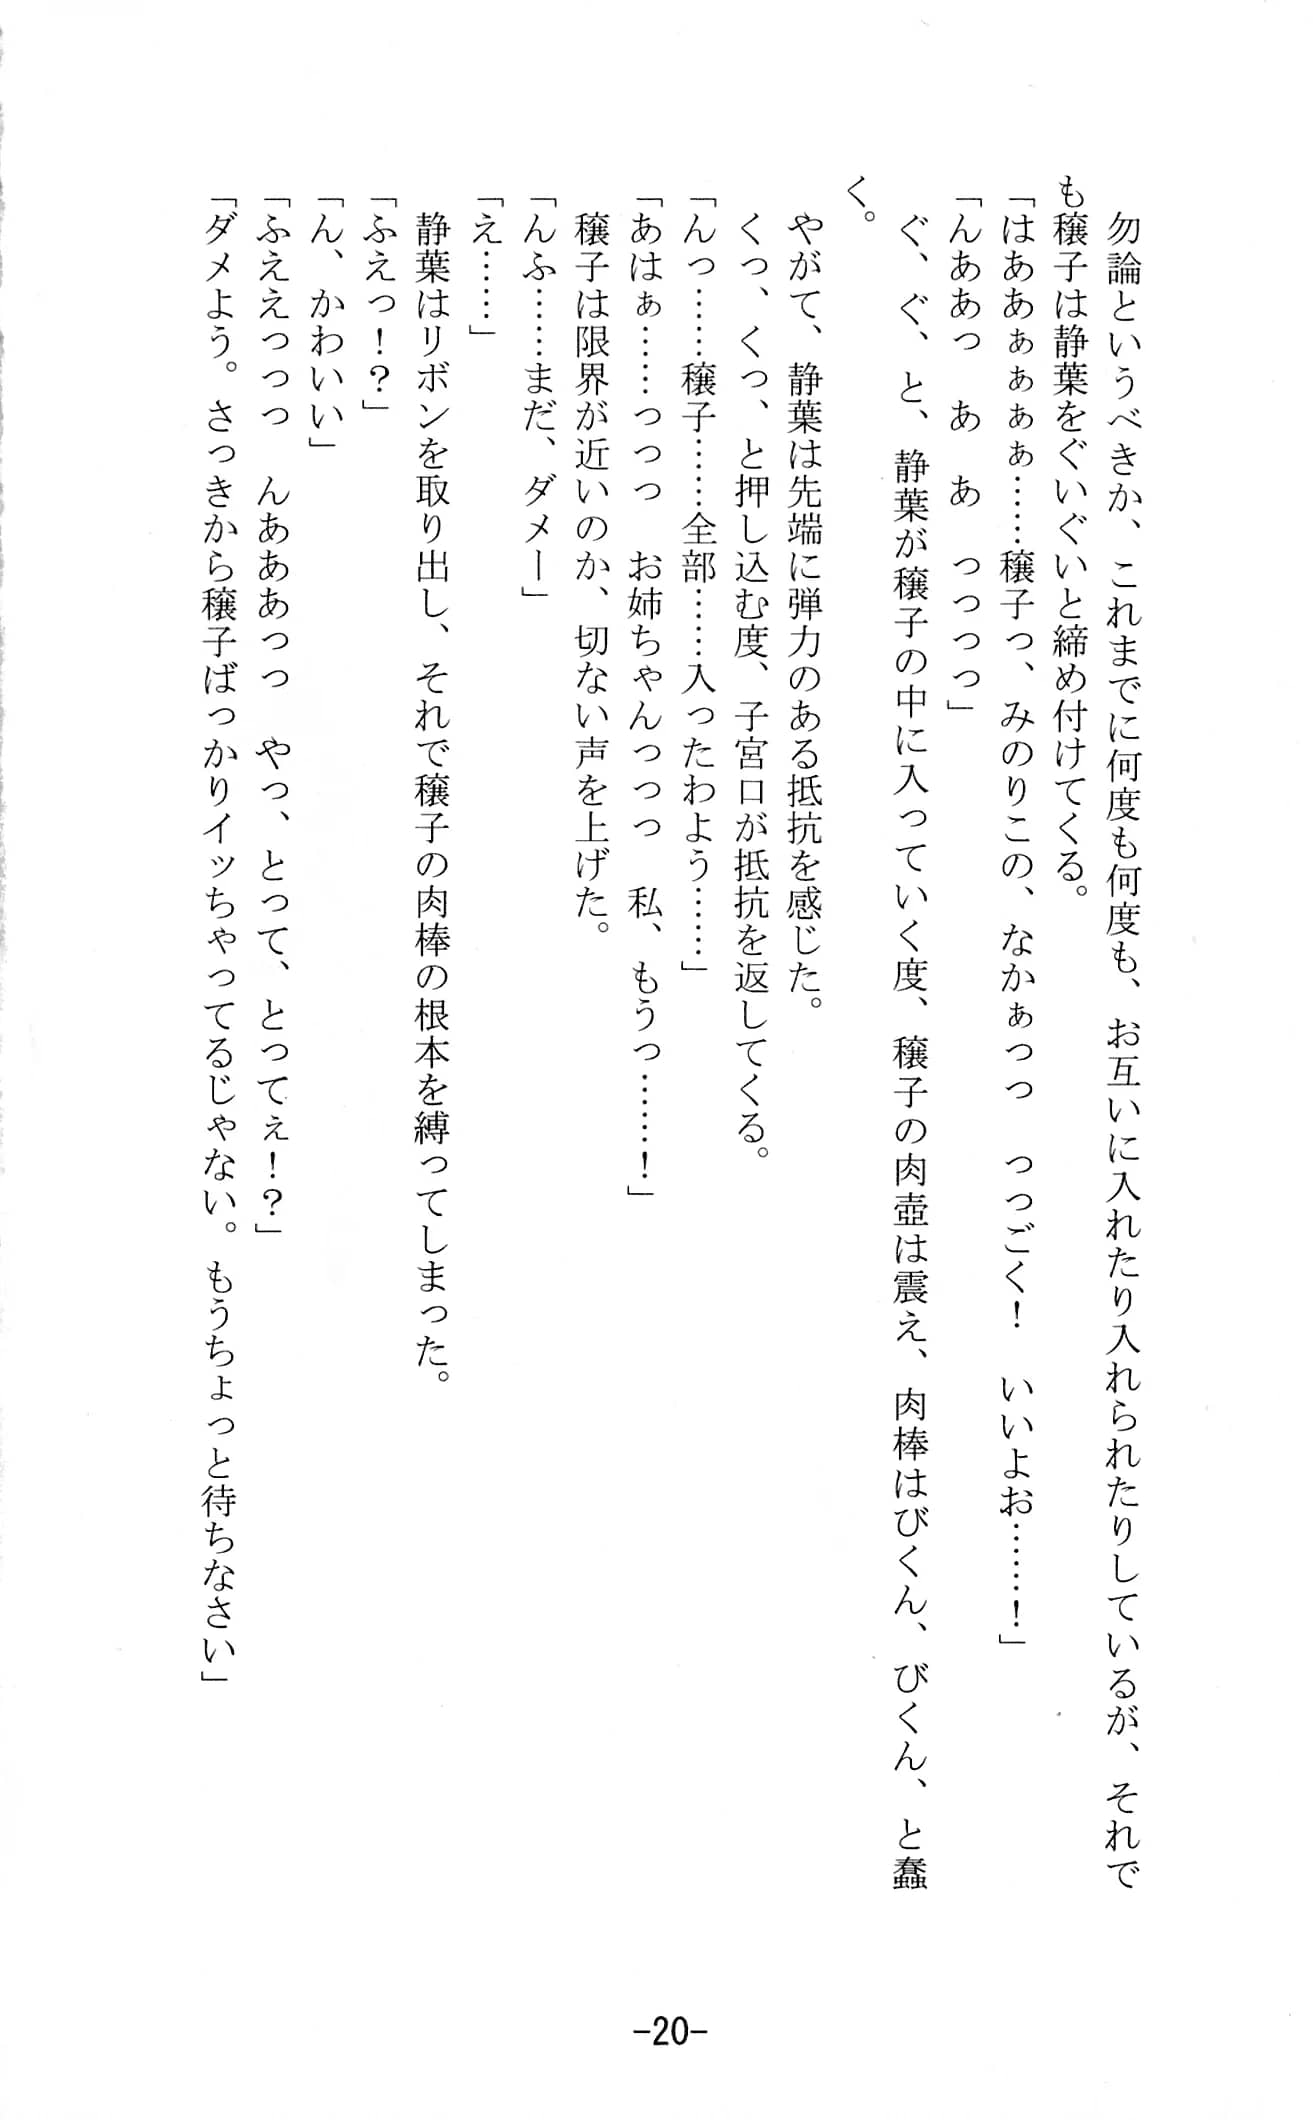 勿論というべきか、これまでに何度も何度も、お互いに入れたり入れられたりしているが、それで
も穣子は静葉をぐいぐいと締め付けてくる。
「はああぁぁぁぁ……穣子っ、みのりこの、なかぁっっ　っっごく！　いいよお………！」
「んああっ　あ　あ　っっっっ」
　ぐ、ぐ、と、静葉が穣子の中に入っていく度、穣子の肉壺は震え、肉棒はびくん、びくん、と蠢
く。
　やがて、静葉は先端に弾力のある抵抗を感じた。
　くっ、くっ、と押し込む度、子宮口が抵抗を返してくる。
「んっ………穣子………全部……入ったわよう……」
「あはぁ……っっっ　お姉ちゃんっっっ　私、もうっ………！」
　穣子は限界が近いのか、切ない声を上げた。
「んふ……まだ、ダメー」
「え……」
　静葉はリボンを取り出し、それで穣子の肉棒の根本を縛ってしまった。
「ふえっ！？」
「ん、かわいい」
「ふええっっっ　んあああっっ　やっ、とって、とってぇ！？」
「ダメよう。さっきから穣子ばっかりイッちゃってるじゃない。もうちょっと待ちなさい」
-20-